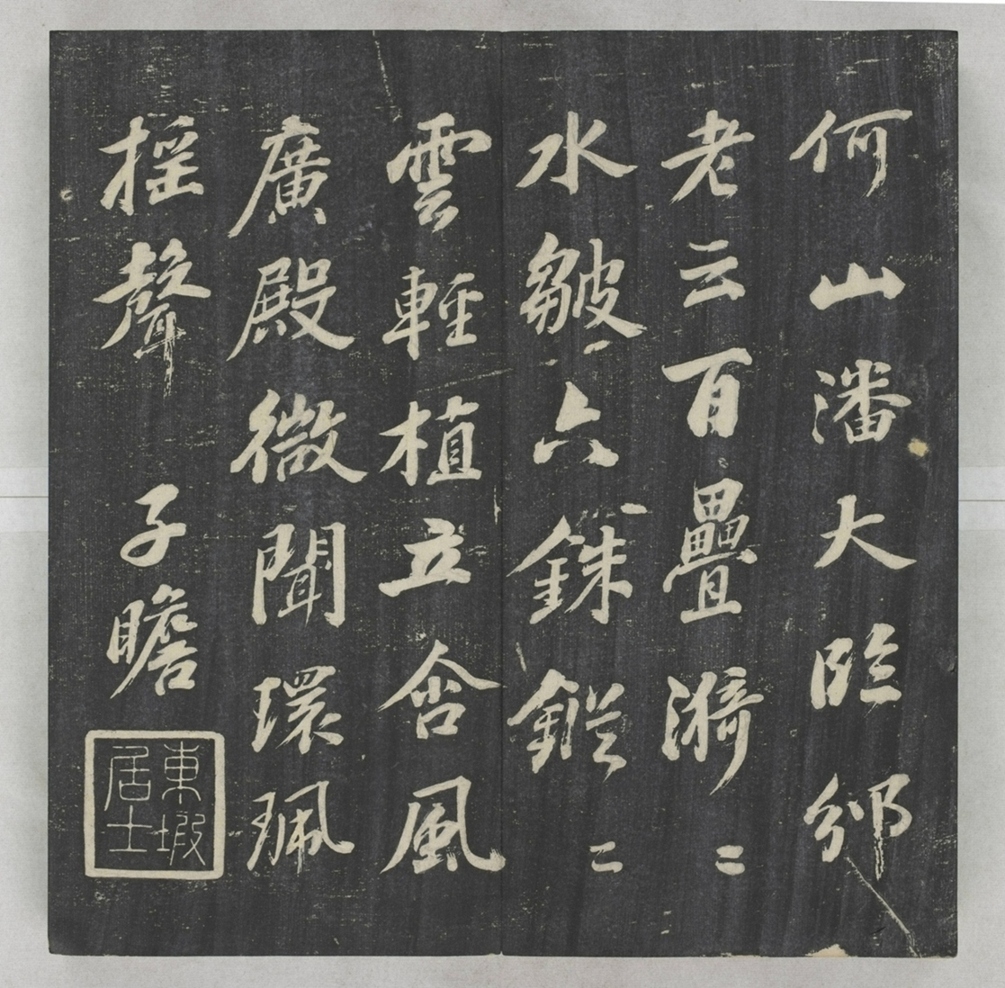 何山潘大臨邠
老云百疊漪〻
水皺六銖鏦〻
雲輕植立含風
廣殿微聞環珮
搖聲 子瞻
東坡
居士